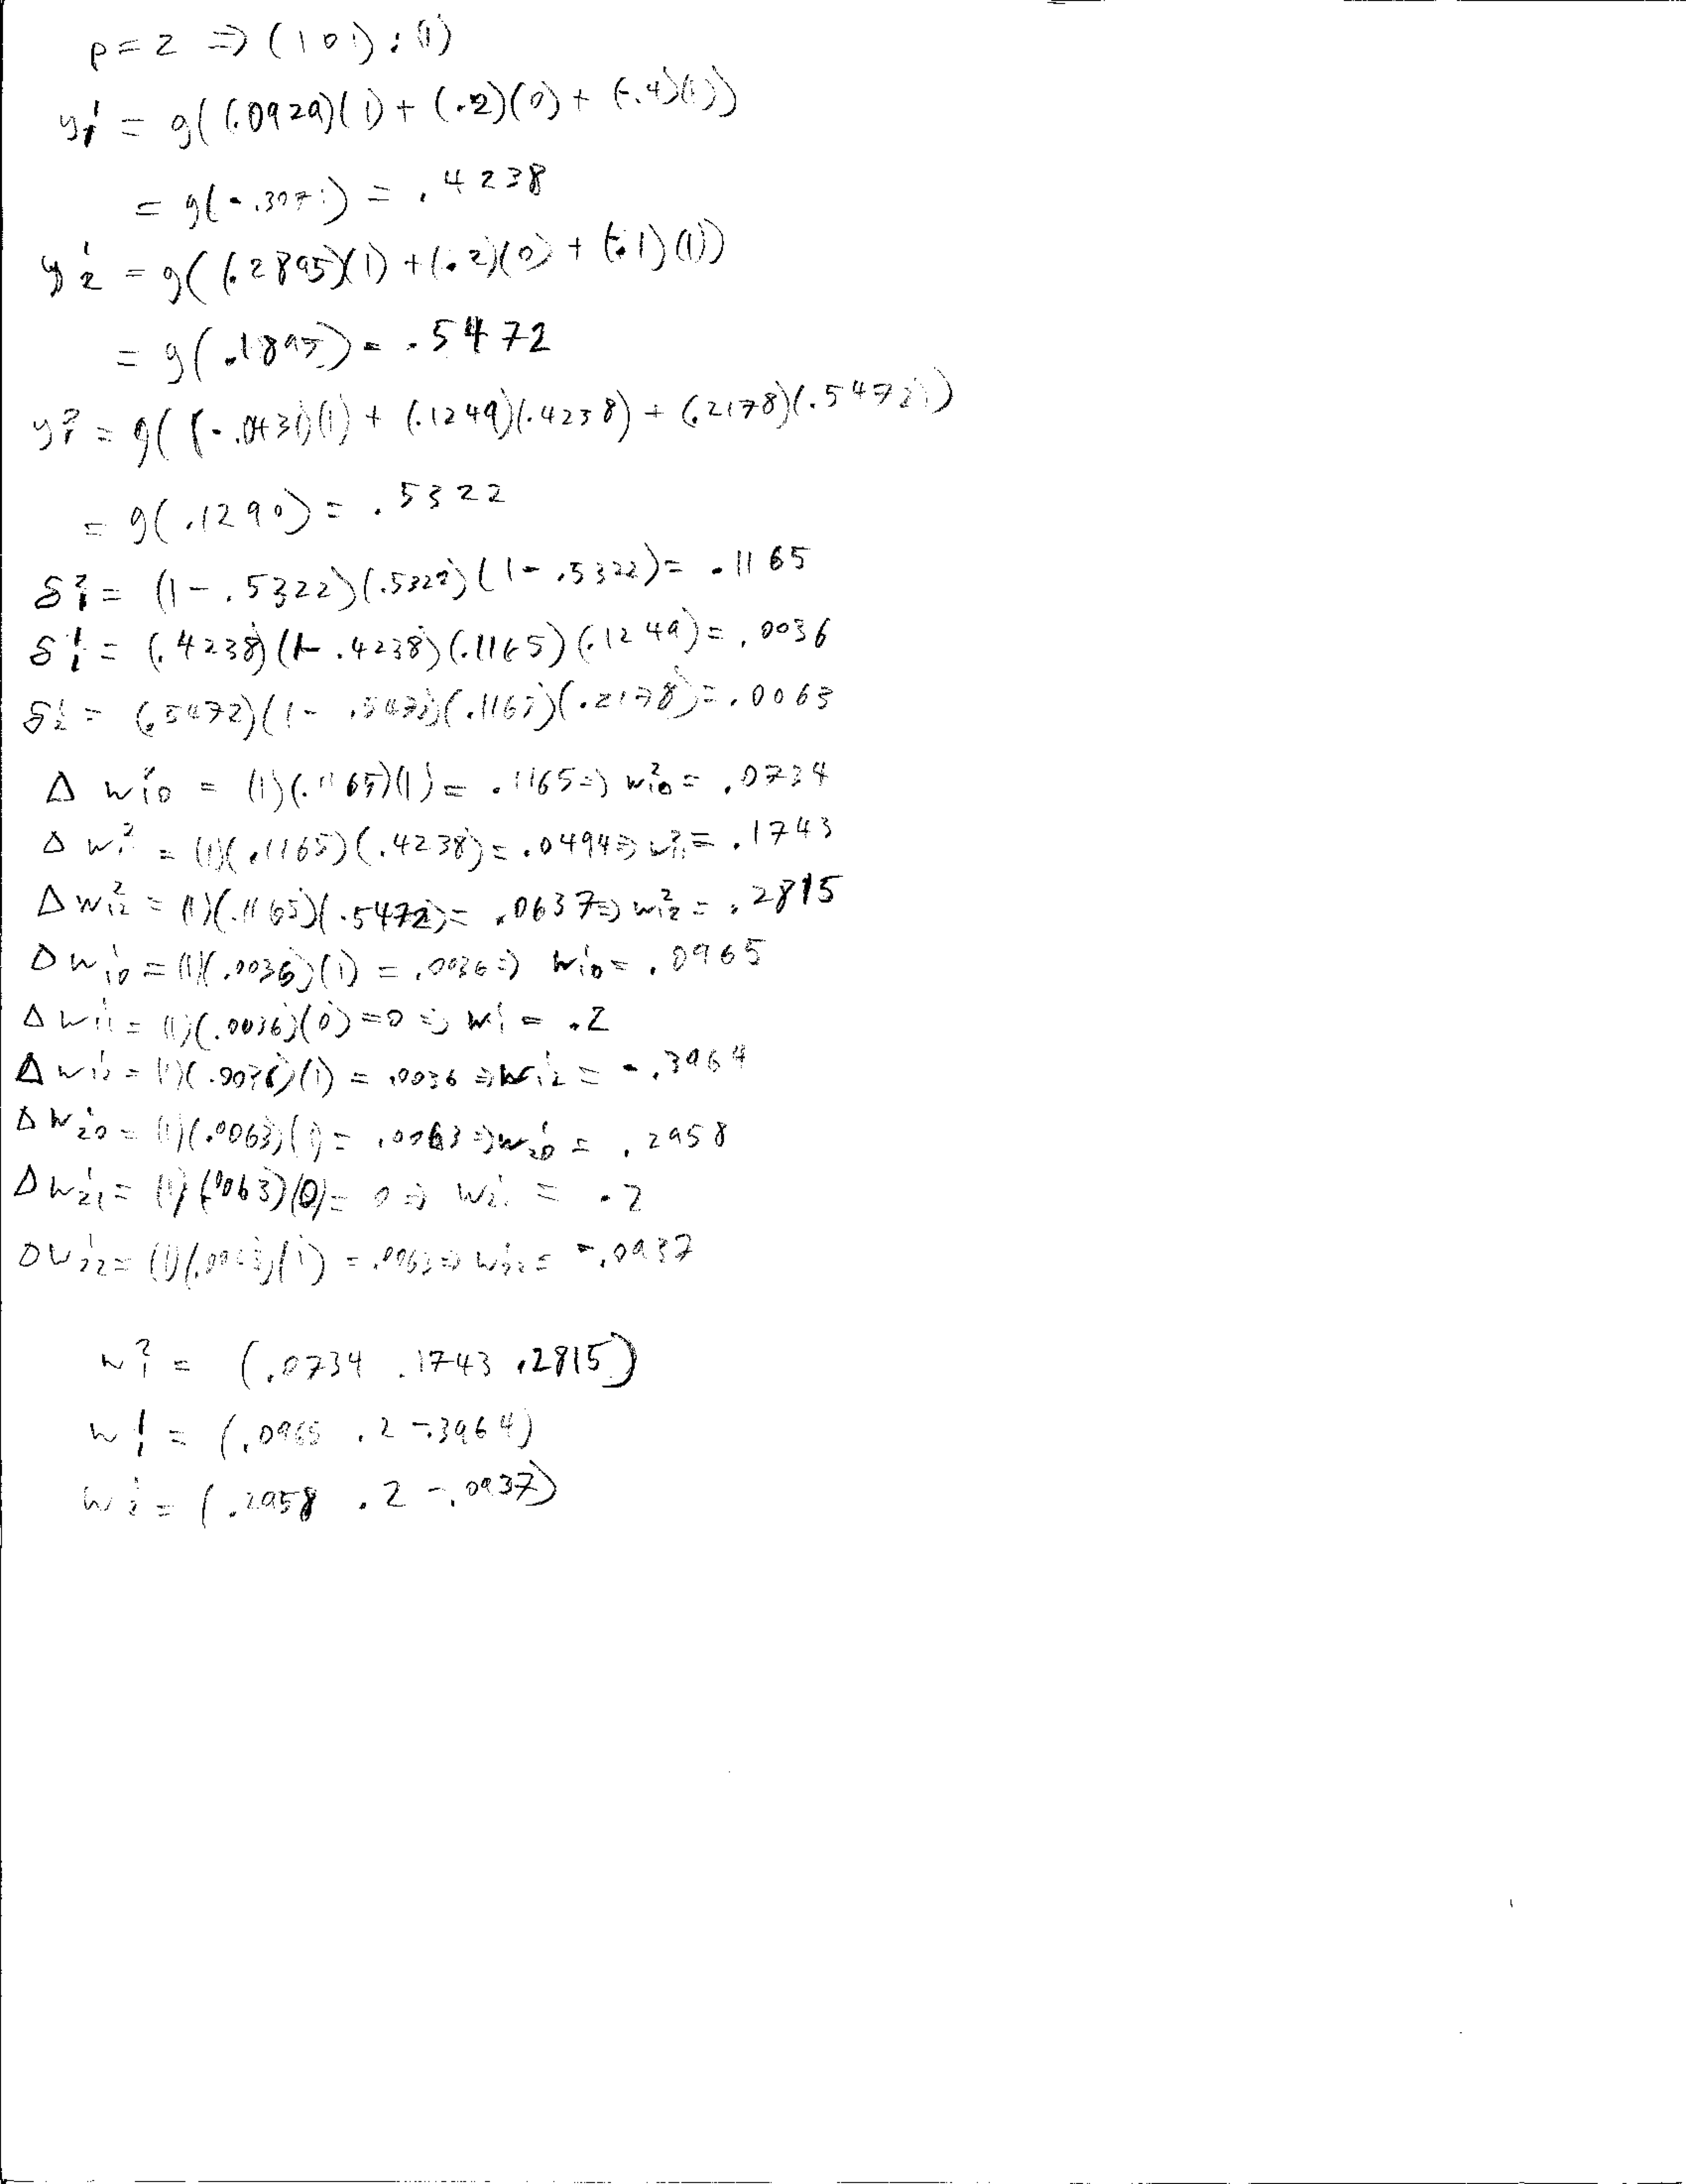 p = 2 ⇒ (1 0 1) : (1)
y₁¹ = g((.0929)(1) + (.2)(0) + (-.4)(1))
= g(-.3071) = .4238
y₂¹ = g((.2895)(1) + (.2)(0) + (-.1)(1))
= g(.1895) = .5472
y₁² = g((-.0431)(1) + (.1249)(.4238) + (.2178)(.5472))
= g(.1290) = .5322
δ₁² = (1 - .5322)(.5322)(1 - .5322) = .1165
δ₁¹ = (.4238)(1 - .4238)(.1165)(.1249) = .0036
δ₂¹ = (.5472)(1 - .5472)(.1165)(.2178) = .0063
Δ w₁₀² = (1)(.1165)(1) = .1165 ⇒ w₁₀² = .0734
Δ w₁₁² = (1)(.1165)(.4238) = .0494 ⇒ w₁₁² = .1743
Δ w₁₂² = (1)(.1165)(.5472) = .0637 ⇒ w₁₂² = .2815
Δ w₁₀¹ = (1)(.0036)(1) = .0036 ⇒ w₁₀¹ = .0965
Δ w₁₁¹ = (1)(.0036)(0) = 0 ⇒ w₁₁¹ = .2
Δ w₁₂¹ = (1)(.0036)(1) = .0036 ⇒ w₁₂¹ = -.3964
Δ w₂₀¹ = (1)(.0063)(1) = .0063 ⇒ w₂₀¹ = .2958
Δ w₂₁¹ = (1)(.0063)(0) = 0 ⇒ w₂₁¹ = .2
Δ w₂₂¹ = (1)(.0063)(1) = .0063 ⇒ w₂₂¹ = -.0937
w₁² = (.0734 .1743 .2815)
w₁¹ = (.0965 .2 -.3964)
w₂¹ = (.2958 .2 -.0937)